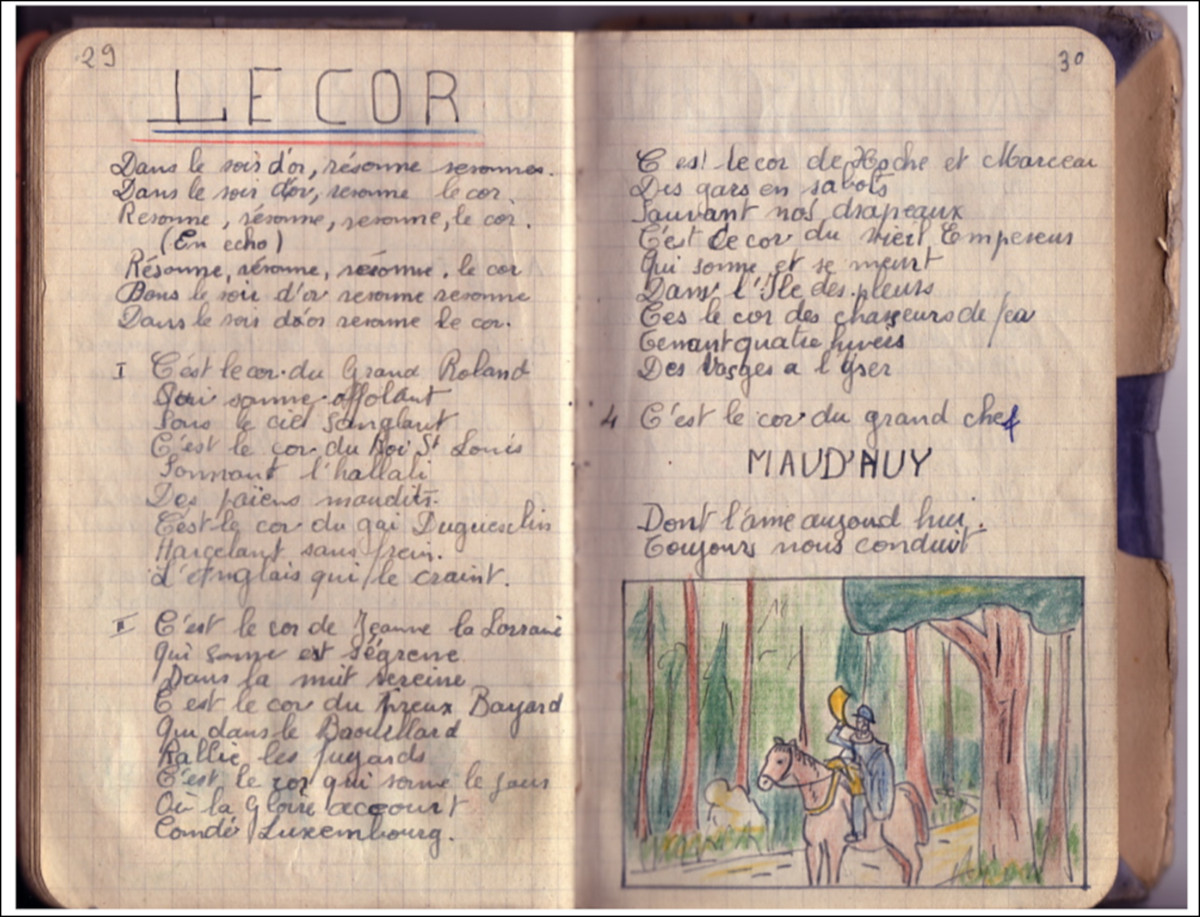 29
LE COR
Dans le soir d'or, résonne resonne.
Dans le soir d'or, resonne le cor.
Resonne, résonne, resonne, le cor.
(En echo)
Résonne, résonne, résonne, le cor
Dans le soir d'or resonne resonne
Dans le soir d'or resonne le cor.
I C'est le cor du Grand Roland
Qui sonne affolant
Sous le ciel sanglant
C'est le cor du Roi St Louis
Sonnant l'hallali
Des païens maudits.
C'est le cor du gai Duguesclin
Harcelant sans frein.
L'Anglais qui le craint.
II C'est le cor de Jeanne la Lorraine
Qui sonne et s'égrene
Dans la nuit sereine
C'est le cor du preux Bayard
Qui dans le Brouillard
Rallie les fuyards
C'est le cor qui sonne le jour
Où la Gloire accourt
Condé Luxembourg.
30
C'est le cor de Hoche et Marceau
Des gars en sabots
Sauvant nos drapeaux
C'est le cor du vieil Empereur
Qui sonne et se meurt
Dans l'Ile des pleurs
C'es le cor des chasseurs de
Tenant quatre hivers
Des Vosges a l'Yser
4 C'est le cor du grand chef
MAUD'HUY
Dont l'âme aujourd hui.
Toujours nous conduit